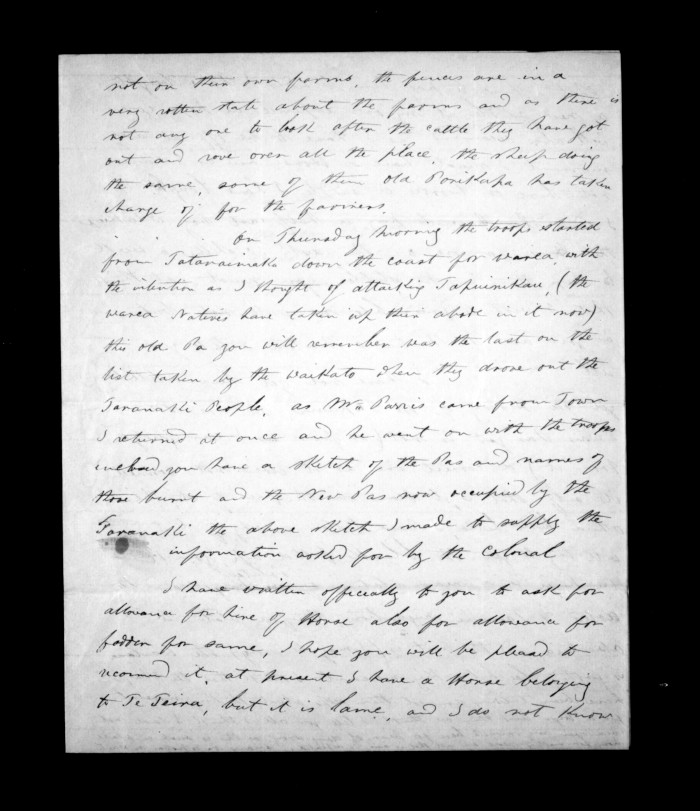 not on their own farms, the fences are in a
very rotten state about the farms and as there is
not any one to look after the cattle they have got
out and rove over all the place, the sheep doing
the same, some of them old Porikapa has taken
charge of for the farmers.
On Thursday morning the troops started
from Tataraimaka down the coast for Warea, with
the intention as I thought of attacking Tapuinikau, (the
Warea Natives have taken up their abode in it now)
this old Pa you will remember was the last on the
list taken by the Waikato when they drove out the
Taranaki People, as Mr Parris came from Town
I returned at once and he went on with the troops
inclosed you have a sketch of the Pas and names of
those burnt and the New Pas now occupied by the
Taranaki the above sketch I made to supply the
information asked for by the Colonal
I have written officially to you to ask for
allowance for hire of Horse also for allowance for
fodder for same, I hope you will be pleased to
recomend it, at present I have a Horse belonging
to Te Teira, but it is lame, and I do not know